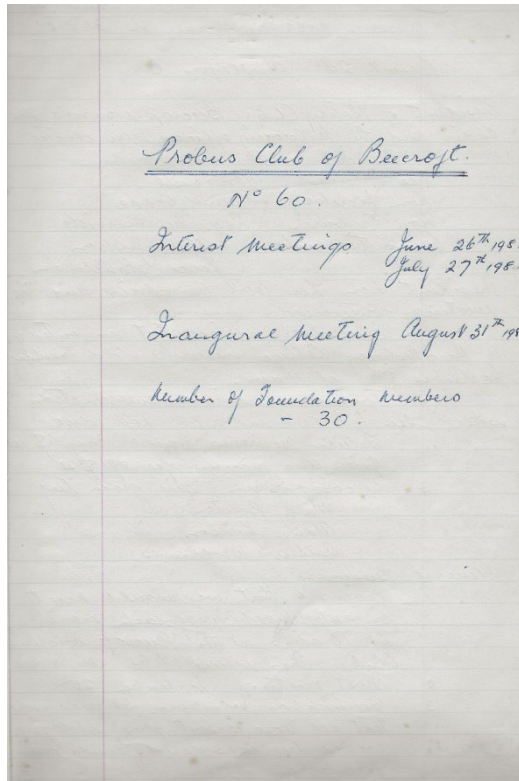 Probus Club of Beecroft.
No 60.
Interest Meetings June 26th 198
July 27th 198
Inaugural Meeting August 31th 198
Number of Foundation Members
- 30.